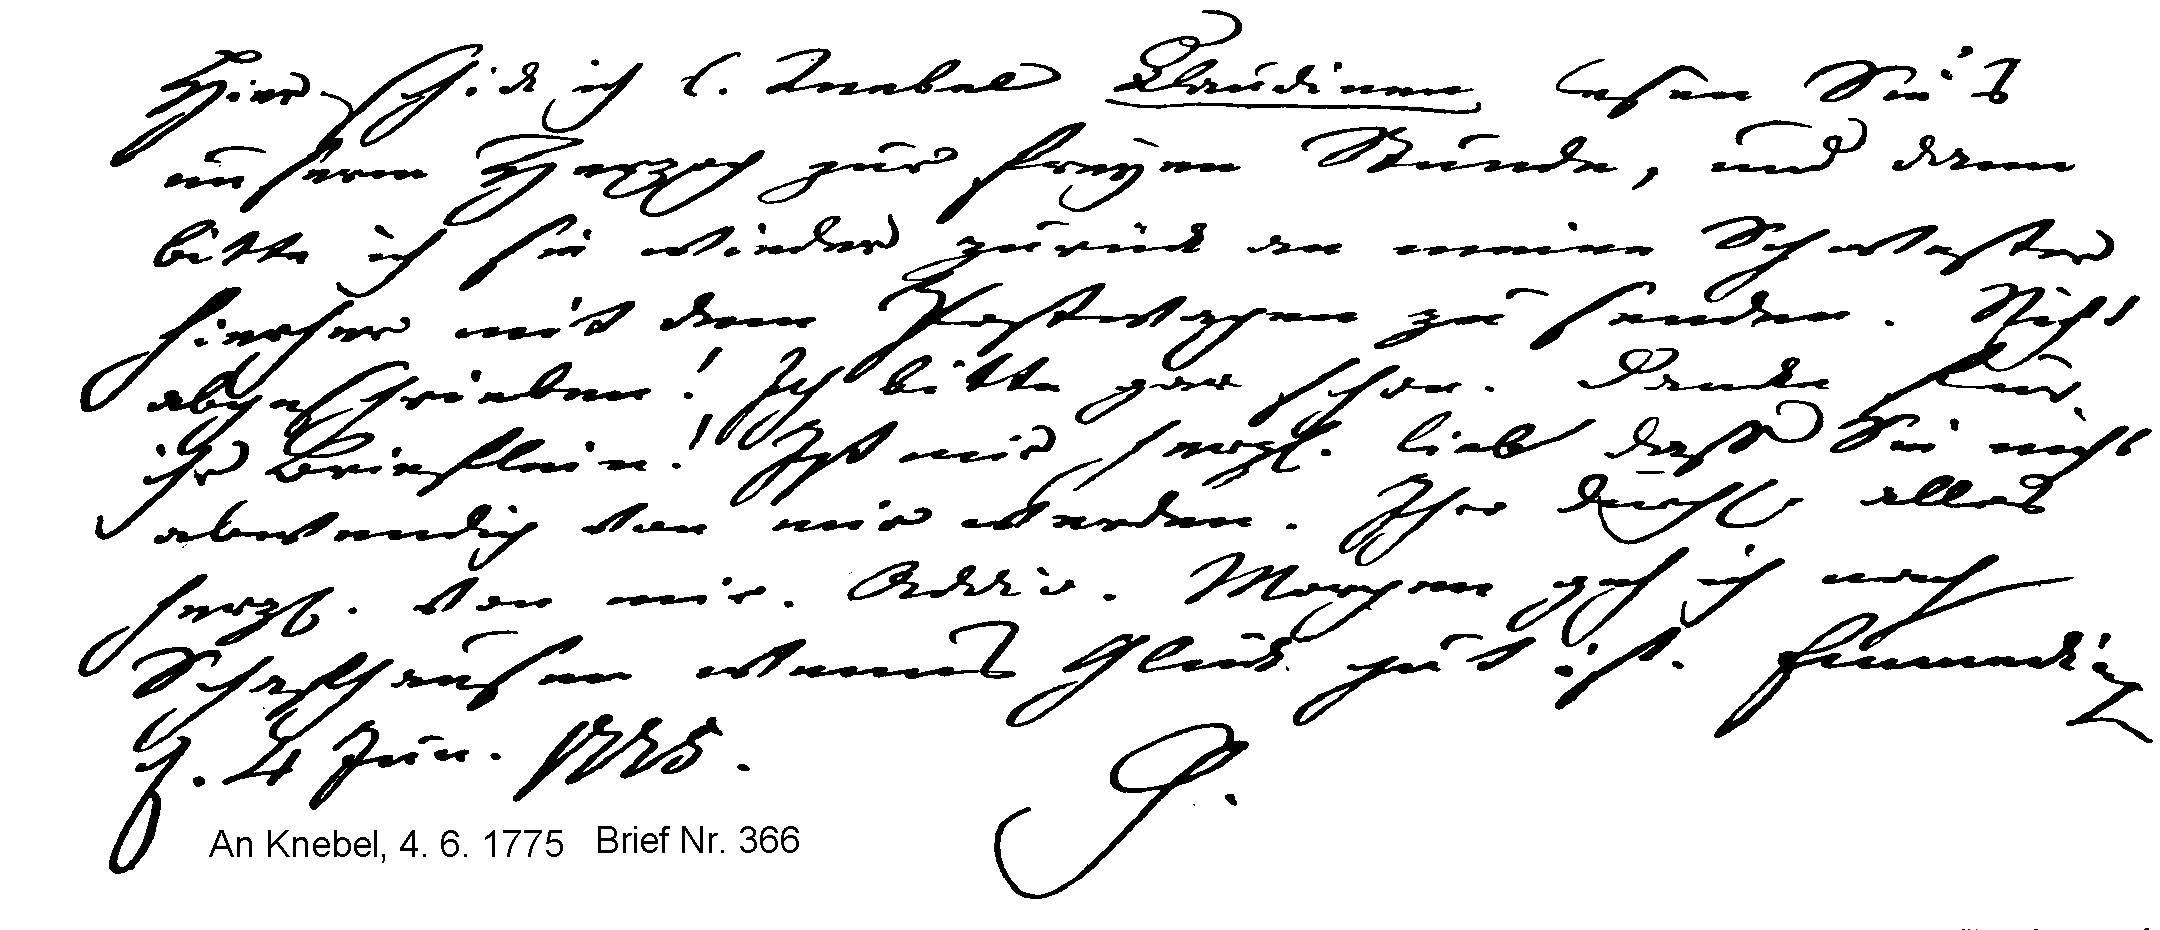 Hier schick ich l. Knebel Claudinen lesen Sie's
unserm Herzog zur freyen Stunde, und dann
bitte ich sie wieder zurück an meine Schwester
hierher mit dem Postwagen zu senden. Nichts
abgeschrieben! Ich bitte gar schön. Dancke für
ihr Brieflein! Ist mir herzl. lieb dass Sie nicht
abwendig von mir werden. Ihro Durchl alles
herzl. von mir. Addio. Morgen geh ich nach
Schaffhausen wenns Glück gut ist. Emmeding
d. 4 Jun. 1775.
G.
An Knebel, 4. 6. 1775 Brief Nr. 366